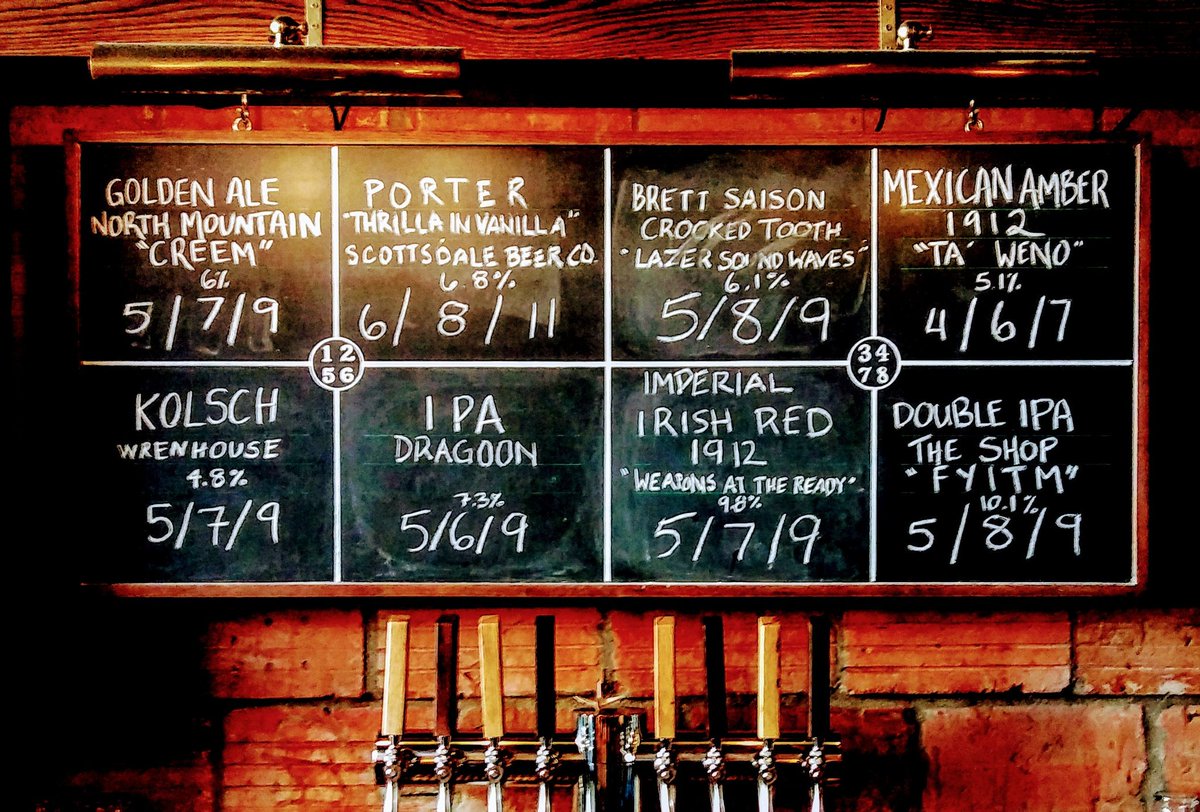 GOLDEN ALE
NORTH MOUNTAIN
"CREEM"
6%
5/7/9
PORTER
"THRILLA IN VANILLA"
SCOTTSDALE BEER CO.
6.8%
6/8/11
BRETT SAISON
CROOKED TOOTH
"LAZER SOUND WAVES"
6.1%
5/8/9
MEXICAN AMBER
1912
"TA' WENO"
5.1%
4/6/7
12
56
34
78
KOLSCH
WRENHOUSE
4.8%
5/7/9
IPA
DRAGOON
7.3%
5/6/9
IMPERIAL
IRISH RED
1912
"WEAPONS AT THE READY"
9.8%
5/7/9
DOUBLE IPA
THE SHOP
"FYITM"
10.1%
5/8/9